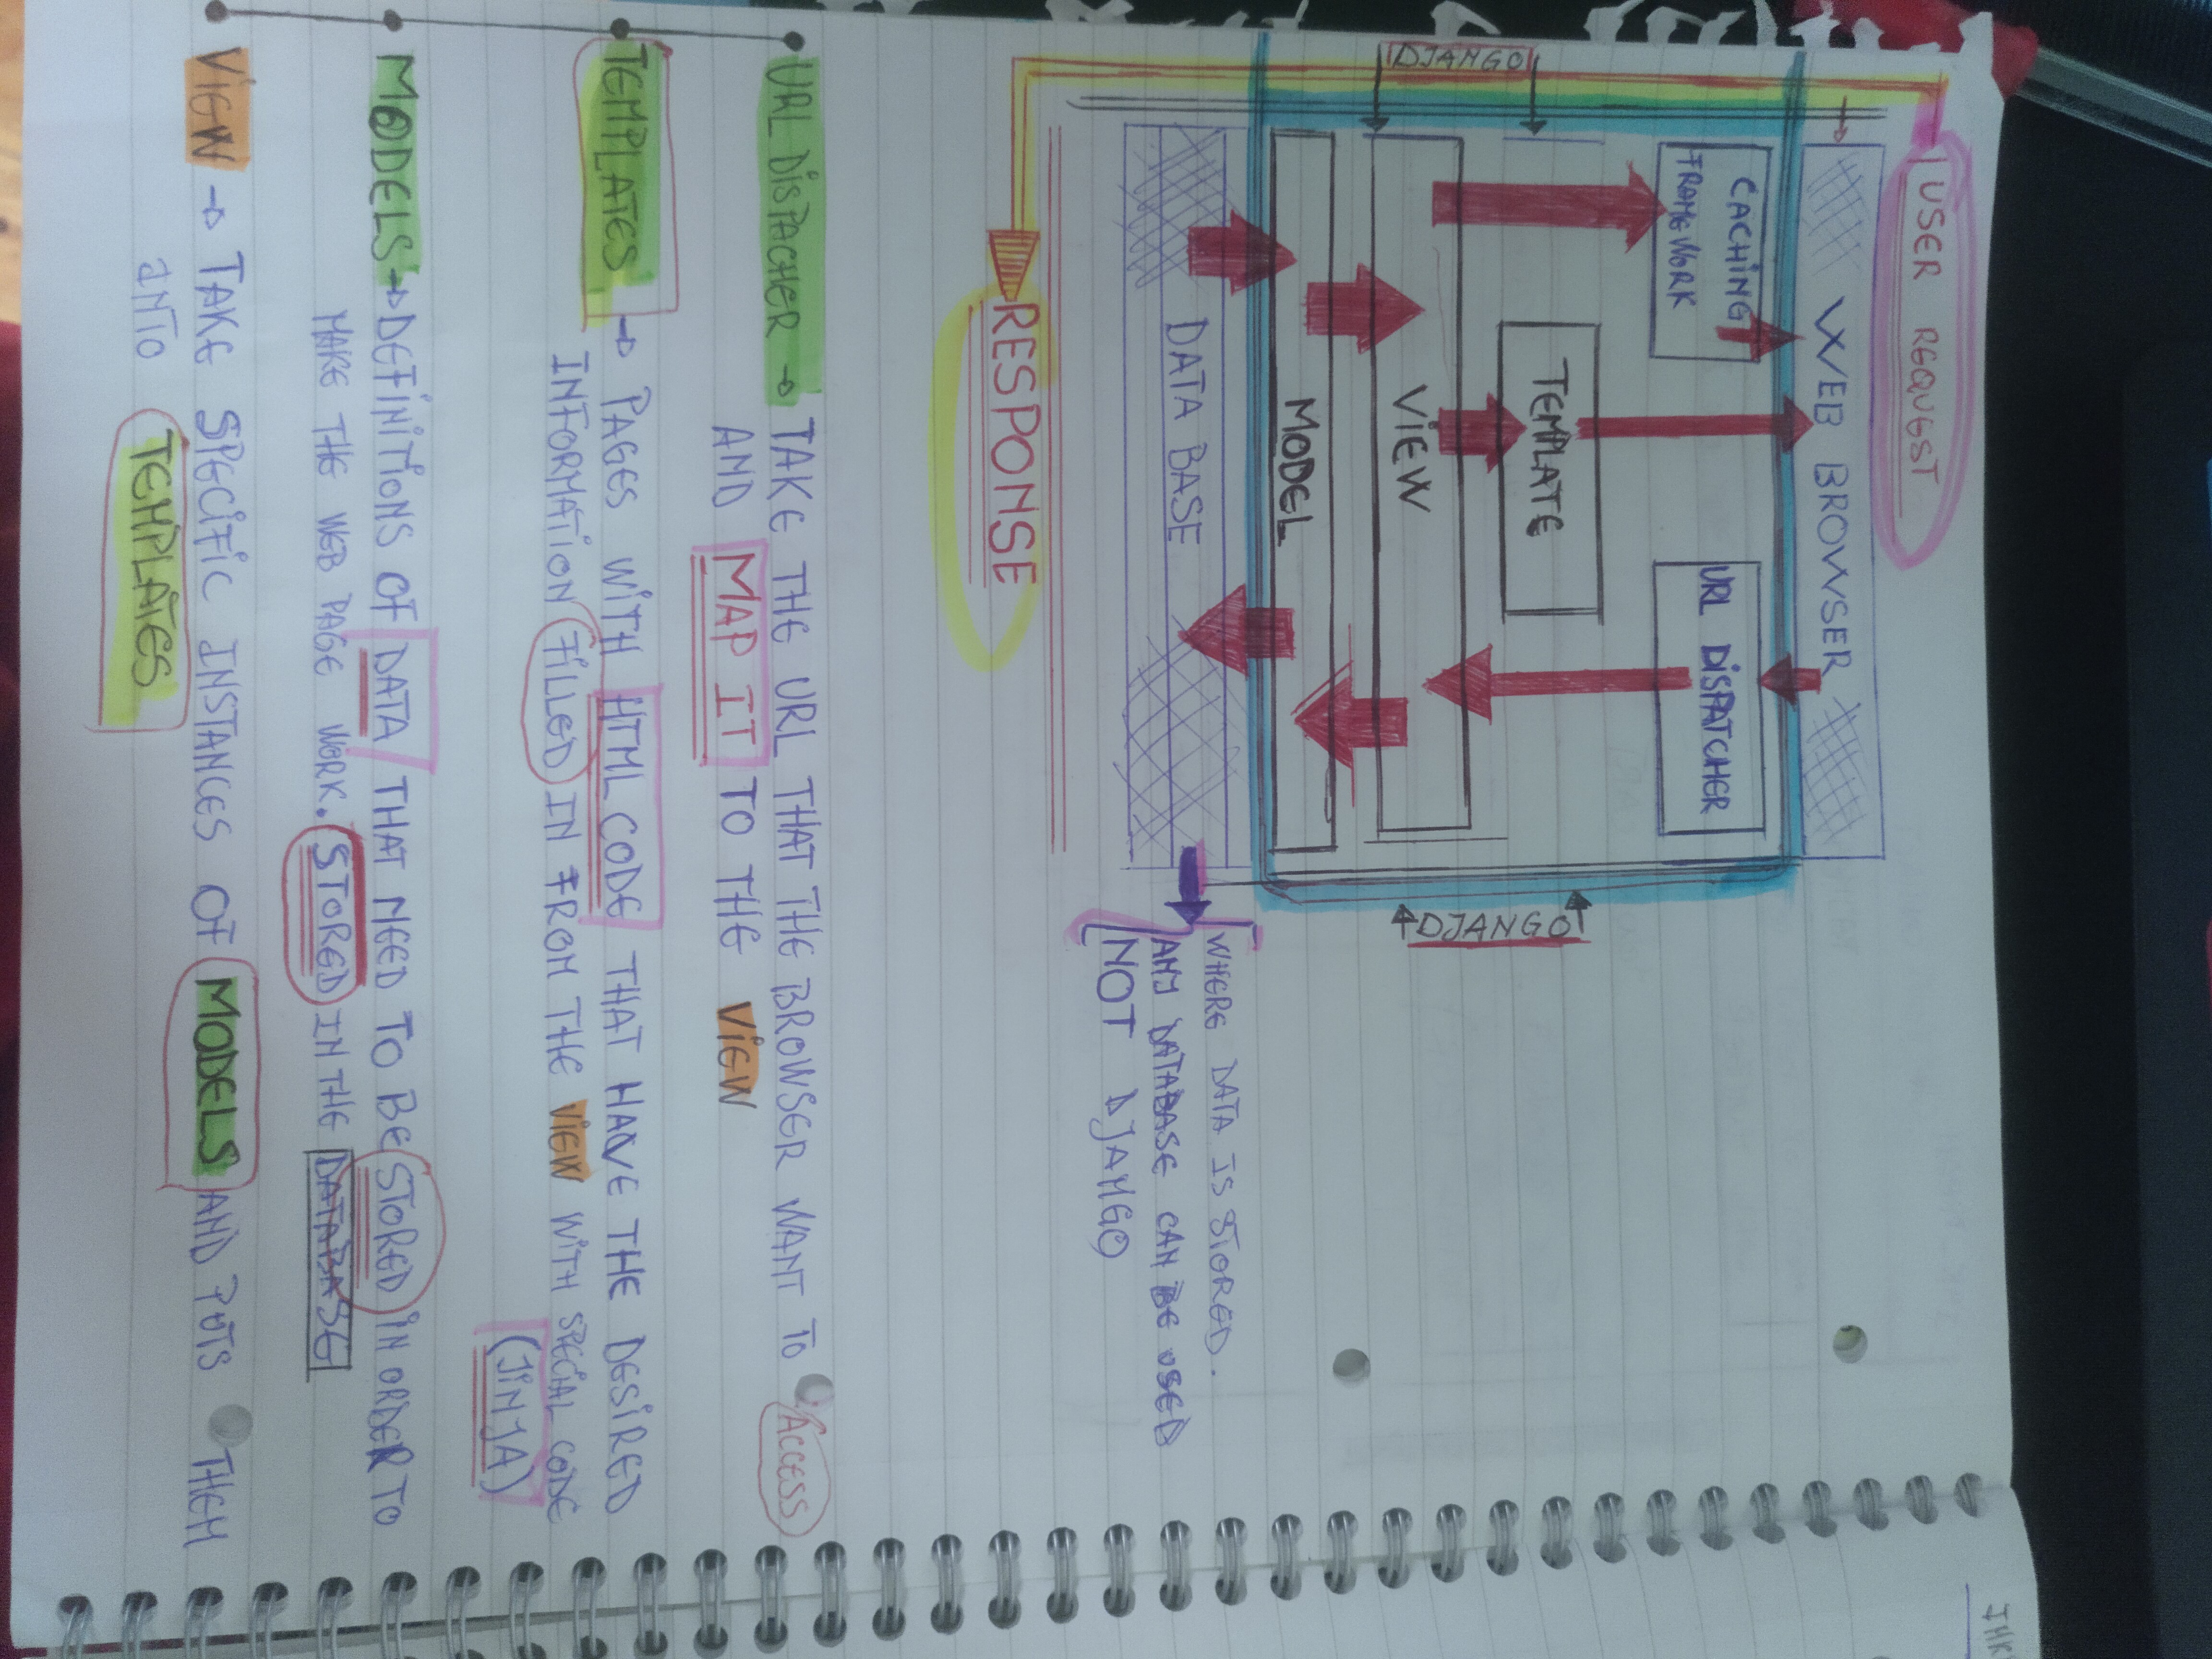 USER REQUEST
WEB BROWSER
CACHING
FRAMEWORK
URL DISPATCHER
TEMPLATE
DJANGO
DJANGO
VIEW
MODEL
DATA BASE
WHERE DATA IS STORED.
ANY DATABASE CAN BE USED
NOT DJANGO
RESPONSE
URL DISPACHER → TAKE THE URL THAT THE BROWSER WANT TO ACCESS
AND MAP IT TO THE VIEW
TEMPLATES → PAGES WITH HTML CODE THAT HAVE THE DESIRED
INFORMATION FILLED IN FROM THE VIEW WITH SPECIAL CODE
(JINJA)
MODELS → DEFINITIONS OF DATA THAT NEED TO BE STORED IN ORDER TO
MAKE THE WEB PAGE WORK. STORED IN THE DATABASE
VIEW → TAKE SPECIFIC INSTANCES OF MODELS AND PUTS THEM
INTO TEMPLATES